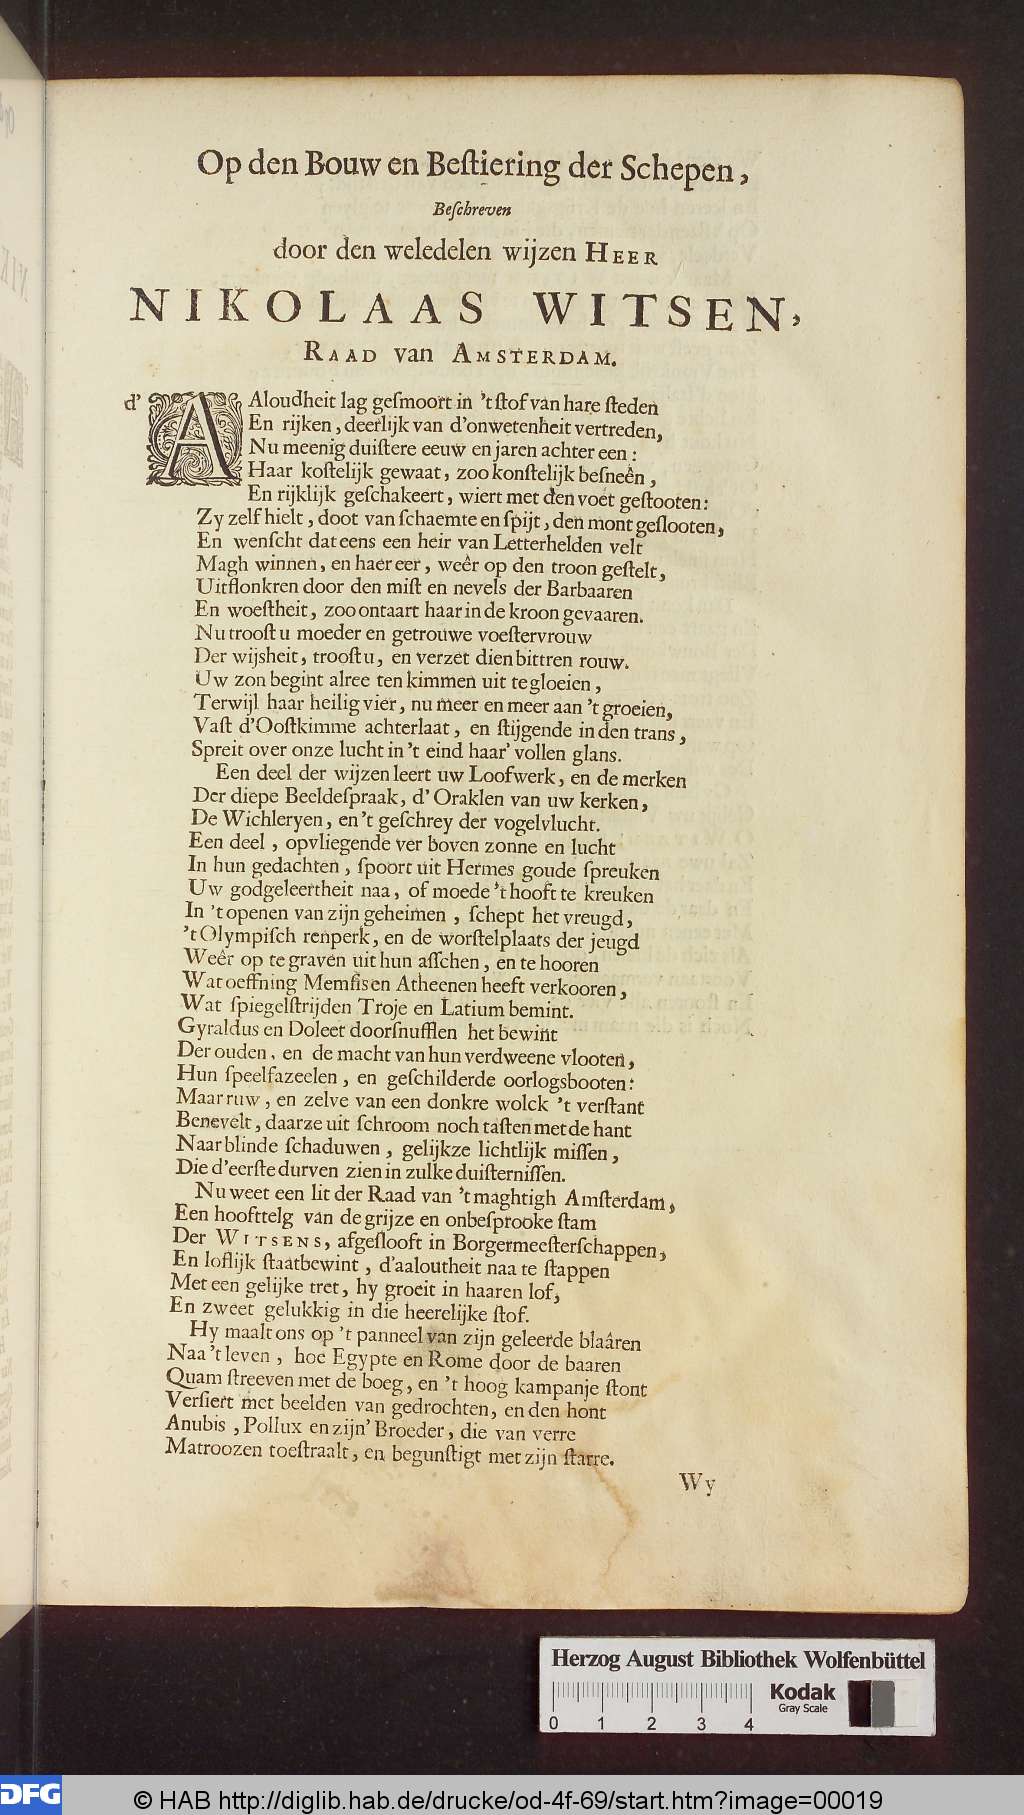 Op den Bouw en Beſtiering der Schepen,
Beſchreven
door den weledelen wijzen HEER
NIKOLAAS WITSEN,
RAAD van AMSTERDAM.
d' AAloudheit lag geſmoort in 't ſtof van hare ſteden
En rijken, deerlijk van d'onwetenheit vertreden,
Nu meenig duiſtere eeuw en jaren achter een:
Haar koſtelijk gewaat, zoo konſtelijk beſneên,
En rijklijk geſchakeert, wiert met den voet geſtooten:
Zy zelf hielt, doot van ſchaemte en ſpijt, den mont geſlooten,
En wenſcht dat eens een heir van Letterhelden velt
Magh winnen, en haer eer, weêr op den troon geſtelt,
Uitflonkren door den miſt en nevels der Barbaaren
En woeſtheit, zoo ontaart haar in de kroon gevaaren.
Nu trooſt u moeder en getrouwe voeſtervrouw
Der wijsheit, trooſt u, en verzet dien bittren rouw.
Uw zon begint alree ten kimmen uit te gloeien,
Terwijl haar heilig vier, nu meer en meer aan 't groeien,
Vaſt d'Ooſtkimme achterlaat, en ſtijgende in den trans,
Spreit over onze lucht in 't eind haar' vollen glans.
Een deel der wijzen leert uw Loofwerk, en de merken
Der diepe Beeldeſpraak, d' Oraklen van uw kerken,
De Wichleryen, en 't geſchrey der vogelvlucht.
Een deel, opvliegende ver boven zonne en lucht
In hun gedachten, ſpoort uit Hermes goude ſpreuken
Uw godgeleertheit naa, of moede 't hooft te kreuken
In 't openen van zijn geheimen, ſchept het vreugd,
't Olympiſch renperk, en de worſtelplaats der jeugd
Weêr op te graven uit hun aſſchen, en te hooren
Wat oeffning Memfis en Atheenen heeft verkooren,
Wat ſpiegelſtrijden Troje en Latium bemint.
Gyraldus en Doleet doorſnufflen het bewint
Der ouden, en de macht van hun verdweene vlooten,
Hun ſpeelfazeelen, en geſchilderde oorlogsbooten:
Maar ruw, en zelve van een donkre wolck 't verſtant
Benevelt, daarze uit ſchroom noch taſten met de hant
Naar blinde ſchaduwen, gelijkze lichtlijk miſſen,
Die d'eerſte durven zien in zulke duiſterniſſen.
Nu weet een lit der Raad van 't maghtigh Amſterdam,
Een hoofttelg van de grijze en onbeſprooke ſtam
Der WITSENS, afgeſlooft in Borgermeeſterſchappen,
En loflijk ſtaatbewint, d'aaloutheit naa te ſtappen
Met een gelijke tret, hy groeit in haaren lof,
En zweet gelukkig in die heerelijke ſtof.
Hy maalt ons op 't panneel van zijn geleerde blaâren
Naa 't leven, hoe Egypte en Rome door de baaren
Quam ſtreeven met de boeg, en 't hoog kampanje ſtont
Verſiert met beelden van gedrochten, en den hont
Anubis, Pollux en zijn' Broeder, die van verre
Matroozen toeſtraalt, en begunſtigt met zijn ſtarre.
Wy
Herzog August Bibliothek Wolfenbüttel
Kodak
Gray Scale
0 1 2 3 4
DFG © HAB http://diglib.hab.de/drucke/od-4f-69/start.htm?image=00019